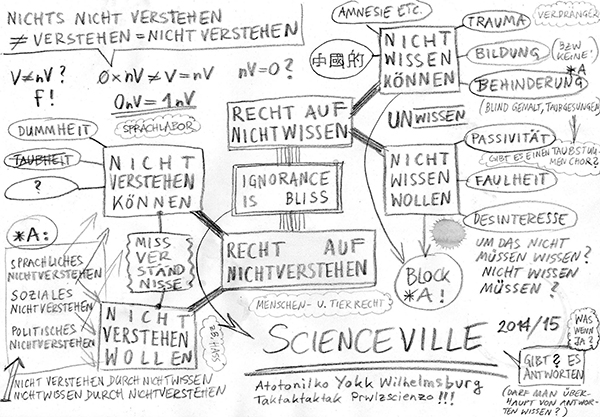 NICHTS NICHT VERSTEHEN
≠ VERSTEHEN = NICHT VERSTEHEN
V≠nV?
f!
0×nV ≠ V = nV
0nV = 1nV
nV=0?
SPRACHLABOR
AMNESIE ETC.
中國的
NICHT
WISSEN
KÖNNEN
TRAUMA
VERDRÄNGER
BILDUNG
(BZW
KEINE!
BEHINDERUNG
*A
(BLIND GEMALT, TAUBGESUNGEN)
RECHT AUF
NICHTWISSEN
UNWISSEN
DUMMHEIT
TAUBHEIT
?
NICHT
VERSTEHEN
KÖNNEN
IGNORANCE
IS BLISS
NICHT
WISSEN
WOLLEN
PASSIVITÄT
GIBT ES EINEN TAUBSTUM-
MENCHOR?
FAULHEIT
DESINTERESSE
*A:
SPRACHLICHES
NICHTVERSTEHEN
SOZIALES
NICHTVERSTEHEN
POLITISCHES
NICHTVERSTEHEN
MISS
VER
STÄND
NISSE
RECHT AUF
NICHTVERSTEHEN
MENSCHEN- U. TIERRECHT
BLOCK
*A!
UM DAS NICHT
MÜSSEN WISSEN?
NICHT WISSEN
MÜSSEN?
NICHT
VERSTEHEN
WOLLEN
z.B. HASS
SCIENCEVILLE 2014/15
WAS
WENN
JA?
GIBT? ES
ANTWORTEN
(DARF MAN ÜBER-
HAUPT VON ANTWOR-
TEN WISSEN?)
NICHT VERSTEHEN DURCH NICHTWISSEN
NICHTWISSEN DURCH NICHTVERSTEHEN
Atotonilko Yokk Wilhelmsburg
Taktaktaktak Prwlzscienzo !!!